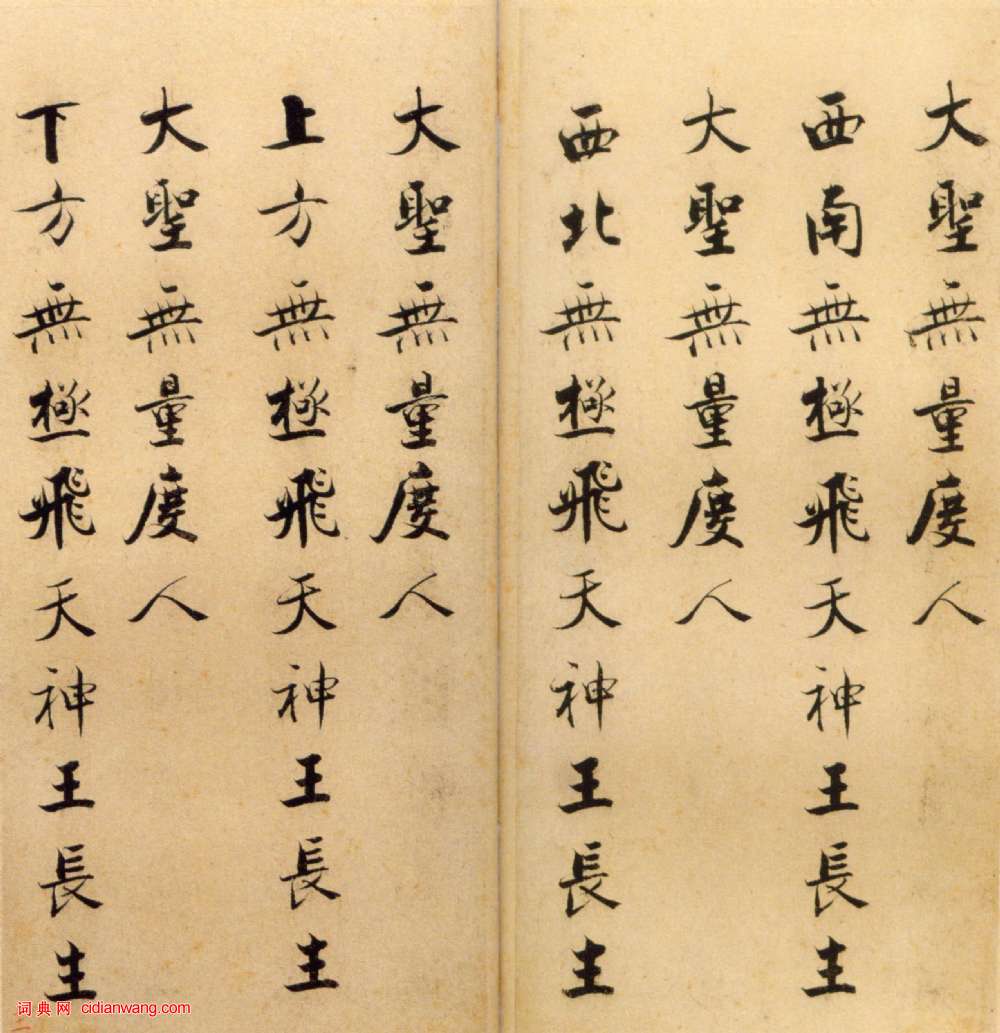 大聖無量度人
西南無極飛天神王長生
大聖無量度人
西北無極飛天神王長生
大聖無量度人
上方無極飛天神王長生
大聖無量度人
下方無極飛天神王長生
词典网 cidianwang.com